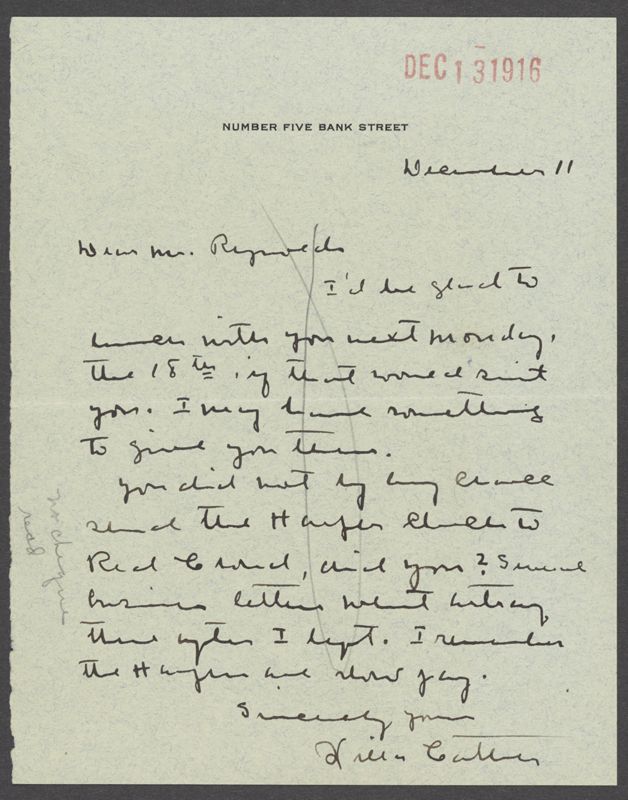 DEC 13 1916
NUMBER FIVE BANK STREET
December 11
Dear Mr. Reynolds
I'd be glad to
lunch with you next Monday,
the 18th, if that would suit
you. I may have something
to give you then.
You did not by any chance
send the Harper check to
Red Cloud, did you? Several
business letters went astray
there after I left. I remember
the Harpers are slow pay.
Sincerely yours
Willa Cather
no cheque